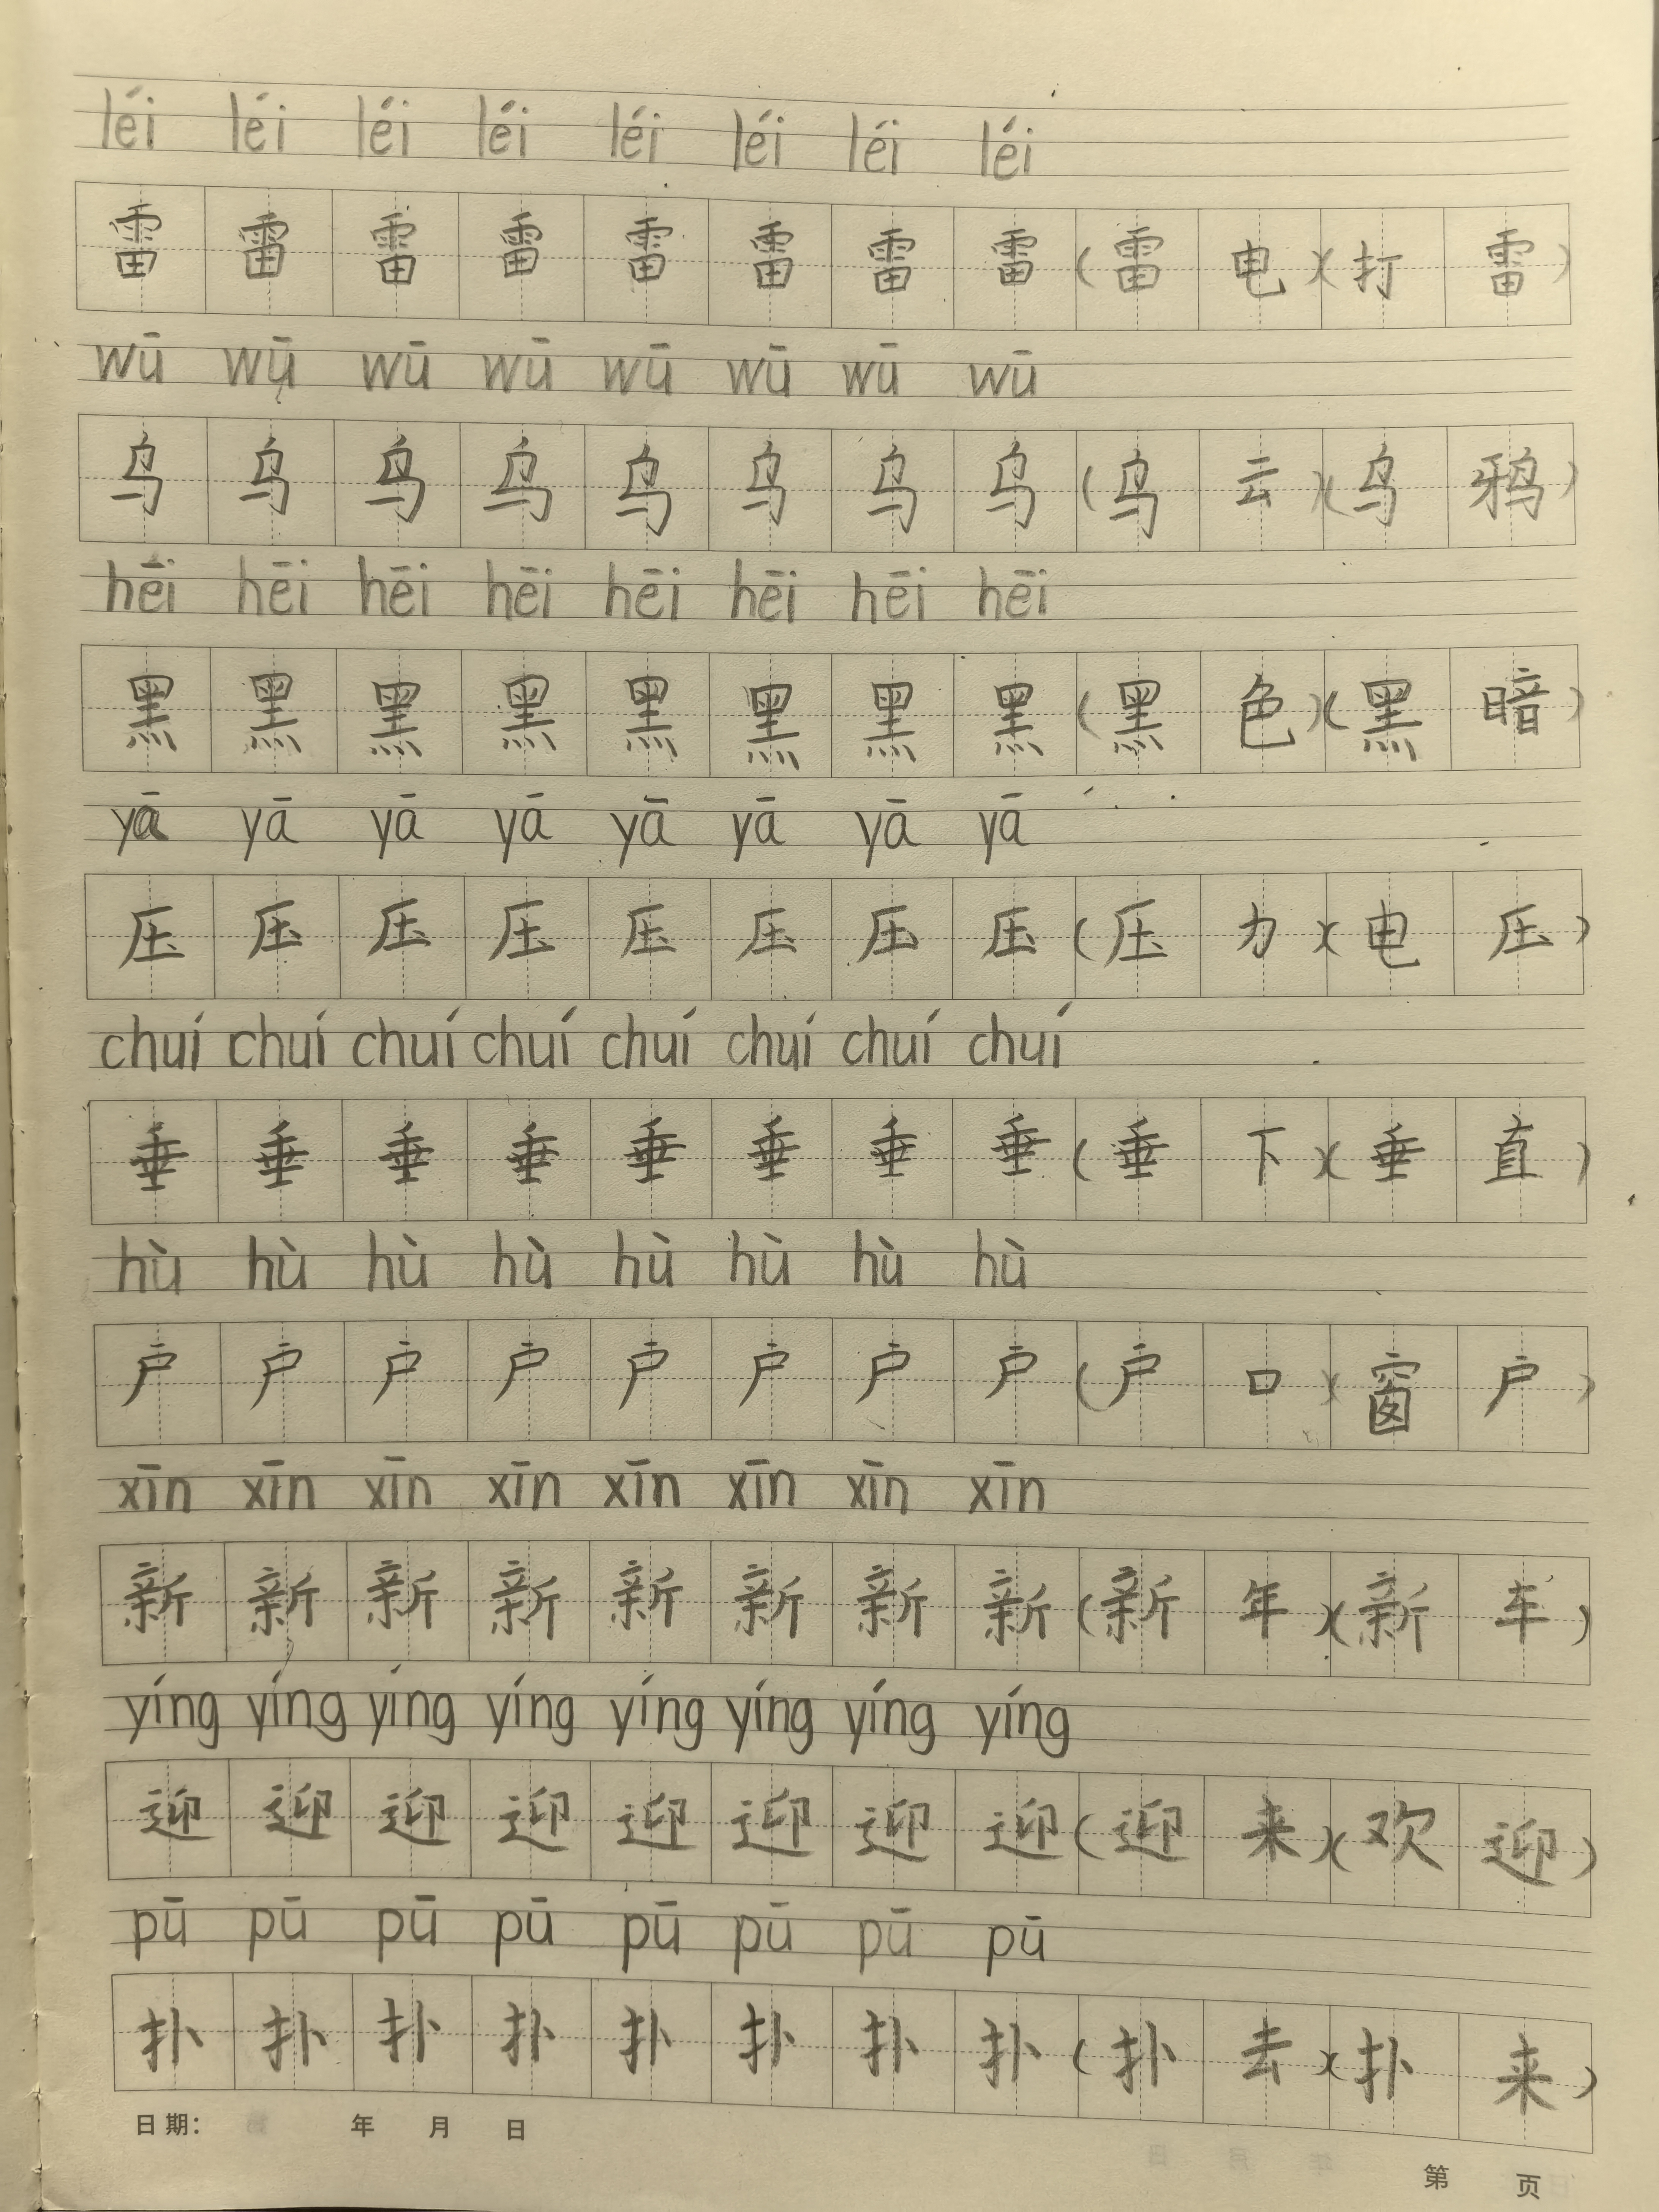 léi léi léi léi léi léi léi léi
雷 雷 雷 雷 雷 雷 雷 雷 (雷 电)(打 雷)
wū wū wū wū wū wū wū wū
乌 乌 乌 乌 乌 乌 乌 乌 (乌 云)(乌 鸦)
hēi hēi hēi hēi hēi hēi hēi hēi
黑 黑 黑 黑 黑 黑 黑 黑 (黑 色)(黑 暗)
yā yā yā yā yā yā yā yā
压 压 压 压 压 压 压 压 (压 力)(电 压)
chuí chuí chuí chuí chuí chuí chuí chuí
垂 垂 垂 垂 垂 垂 垂 垂 (垂 下)(垂 直)
hù hù hù hù hù hù hù hù
户 户 户 户 户 户 户 户 (户 口)(窗 户)
xīn xīn xīn xīn xīn xīn xīn xīn
新 新 新 新 新 新 新 新 (新 年)(新 车)
yíng yíng yíng yíng yíng yíng yíng yíng
迎 迎 迎 迎 迎 迎 迎 迎 (迎 来)(欢 迎)
pū pū pū pū pū pū pū pū
扑 扑 扑 扑 扑 扑 扑 扑 (扑 去)(扑 来)
日期： 年 月 日
第 页